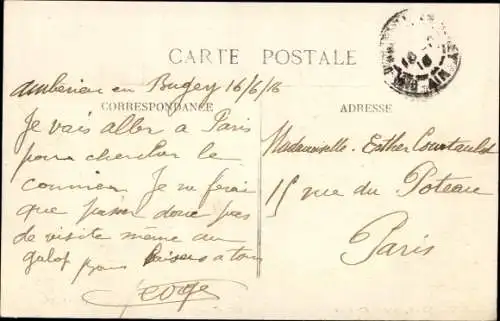 CARTE POSTALE
Ambérieu en Bugey 16/6/16
CORRESPONDANCE
ADRESSE
Je vais aller à Paris
pour chercher le
courrier Je ne ferai
que passer donc pas
de visite même au
galop baisers à tous
Mademoiselle Esther
15 rue du Poteau
Paris